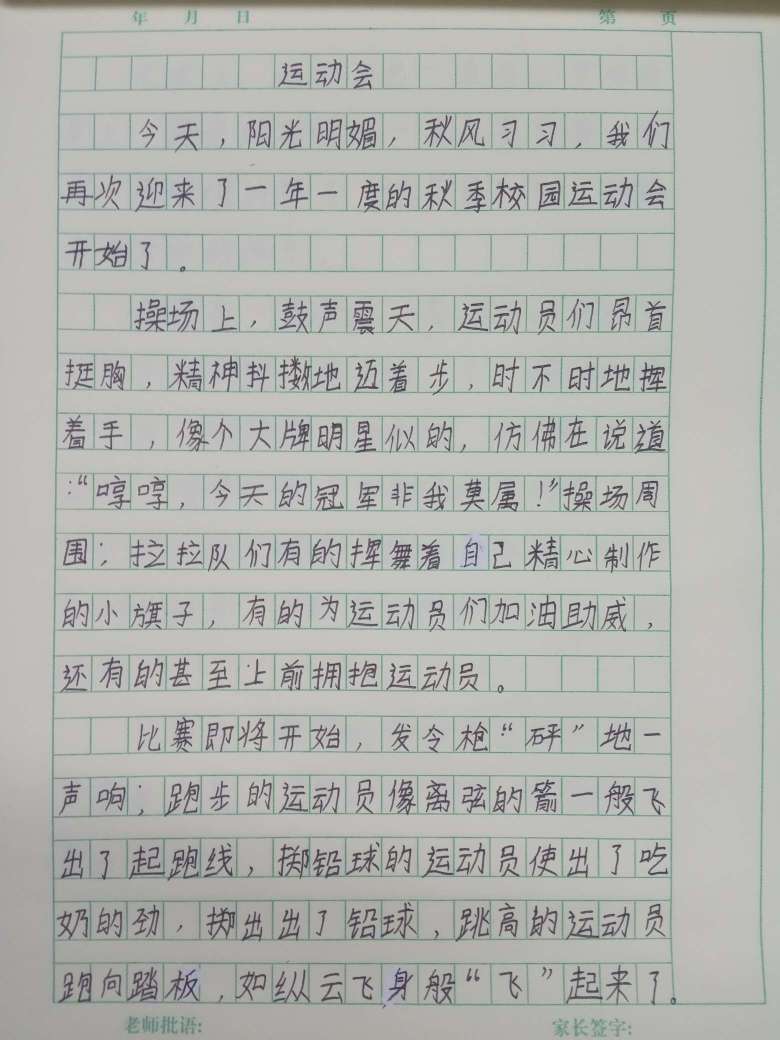 年 月 日 第 页
运动会
今天，阳光明媚，秋风习习，我们
再次迎来了一年一度的秋季校园运动会
开始了。
操场上，鼓声震天，运动员们昂首
挺胸，精神抖擞地迈着步，时不时地挥
着手，像个大牌明星似的，仿佛在说道
：“哼哼，今天的冠军非我莫属！”操场周
围；拉拉队们有的挥舞着自己精心制作
的小旗子，有的为运动员们加油助威，
还有的甚至上前拥抱运动员。
比赛即将开始，发令枪“砰”地一
声响；跑步的运动员像离弦的箭一般飞
出了起跑线，掷铅球的运动员使出了吃
奶的劲，掷出出了铅球，跳高的运动员
跑向踏板，如纵云飞身般“飞”起来了。
老师批语： 家长签字：